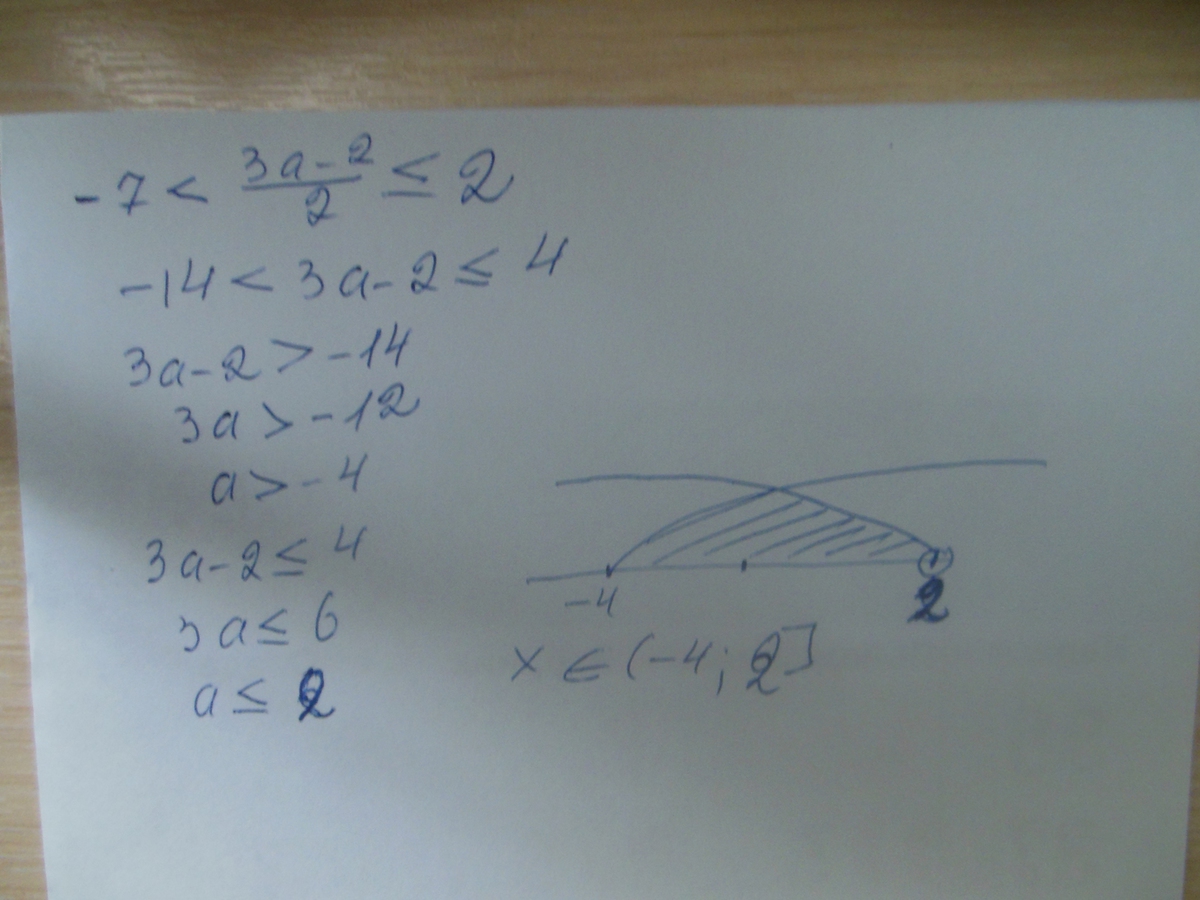 -7 < (3a-2)/2 ≤ 2
-14 < 3a-2 ≤ 4
3a-2 > -14
3a > -12
a > -4
3a-2 ≤ 4
3a ≤ 6
a ≤ 2
-4 2
x ∈ (-4; 2]